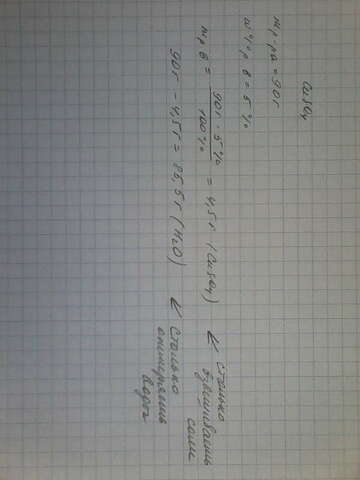 CuSO4
m р-ра = 90 г
w% р.в = 5%
m р.в = 90г · 5% / 100% = 4,5 г (CuSO4) ← столько взвешиваешь соли
90г - 4,5г = 85,5г (H2O) ← столько отмеряешь воды